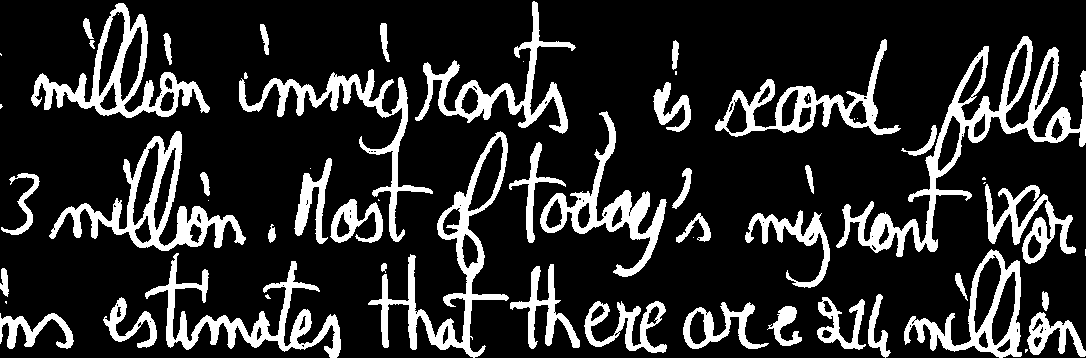 million immigrants, is second, follo
3 million. Most of today's migrant wor
ms estimates that there are 214 million